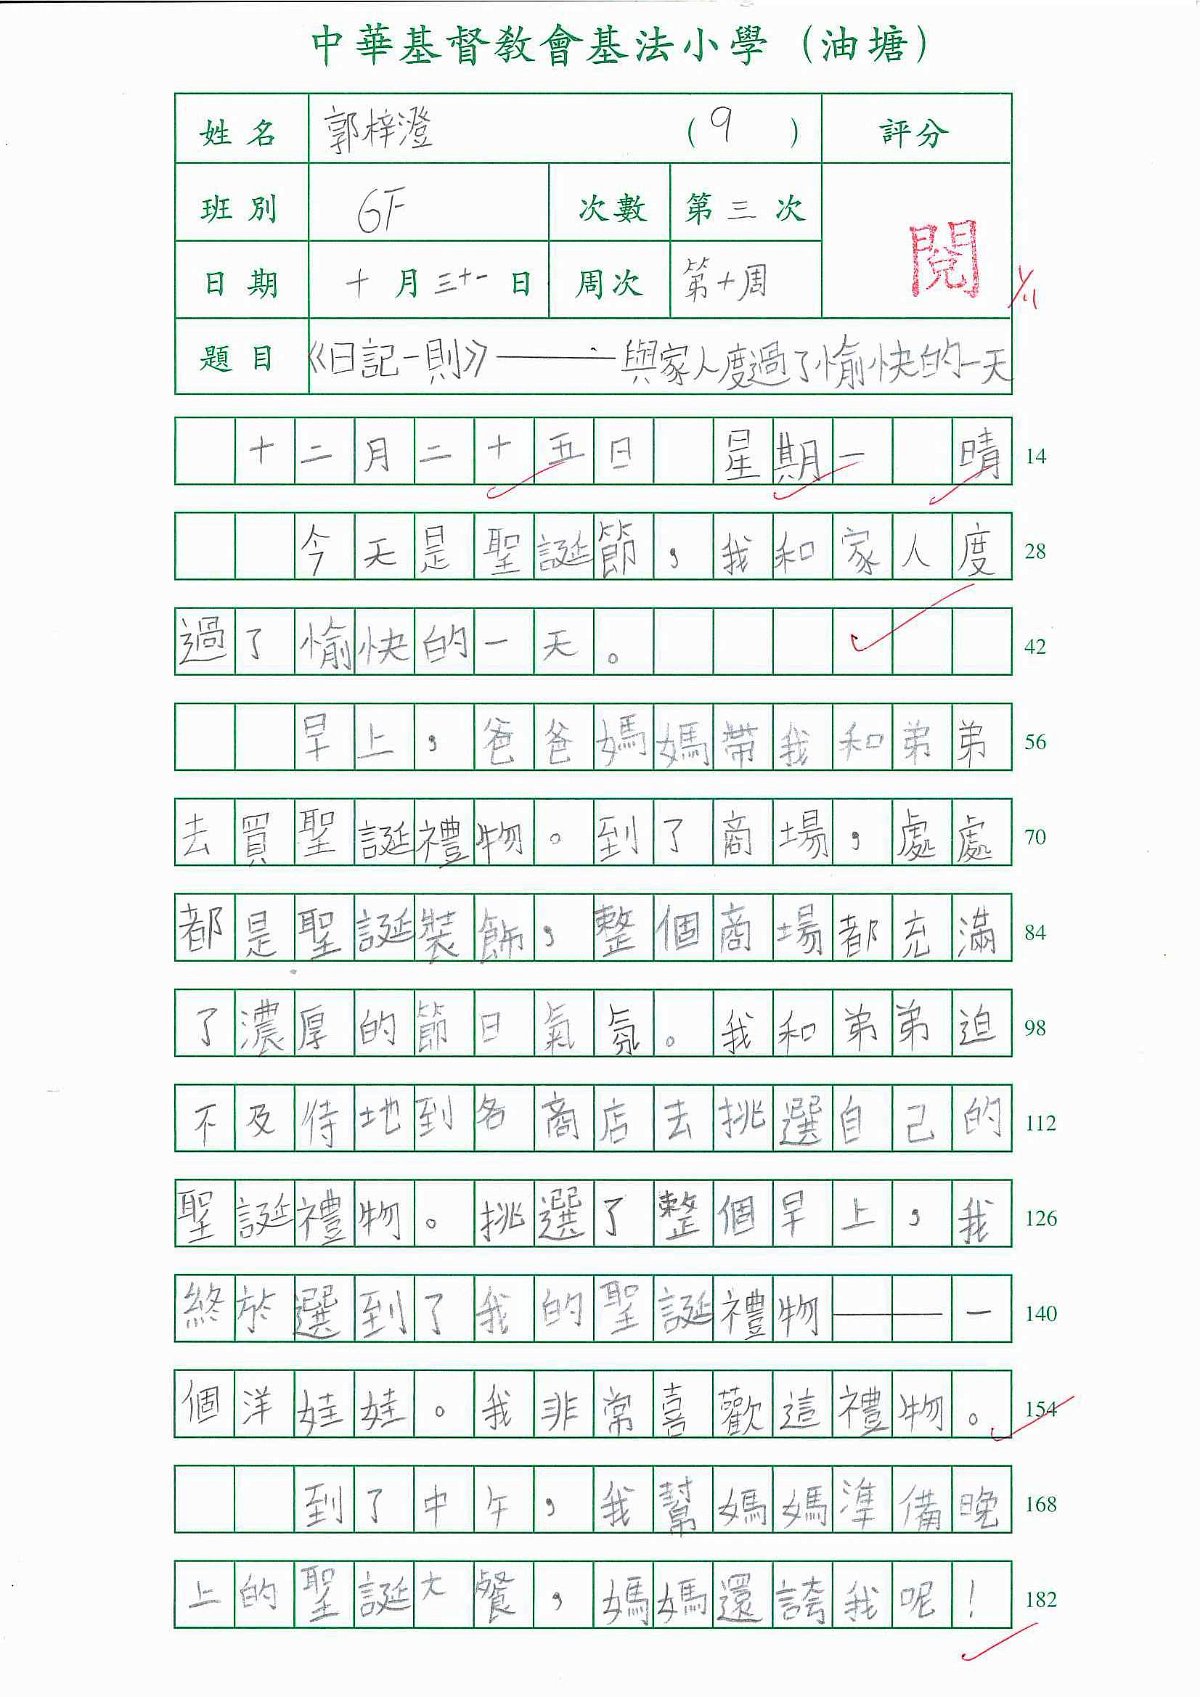 中華基督教會基法小學（油塘）
姓名 郭梓澄 （9） 評分
班別 6F 次數 第三次
閱 1/11
日期 十月三十一日 周次 第十周
題目 《日記一則》——與家人度過了愉快的一天
十二月二十五日 星期一 晴 14
今天是聖誕節，我和家人度 28
過了愉快的一天。 42
早上，爸爸媽媽帶我和弟弟 56
去買聖誕禮物。到了商場，處處 70
都是聖誕裝飾，整個商場都充滿 84
了濃厚的節日氣氛。我和弟弟迫 98
不及待地到各商店去挑選自己的 112
聖誕禮物。挑選了整個早上，我 126
終於選到了我的聖誕禮物——一 140
個洋娃娃。我非常喜歡這禮物。 154
到了中午，我幫媽媽準備晚 168
上的聖誕大餐，媽媽還誇我呢！ 182